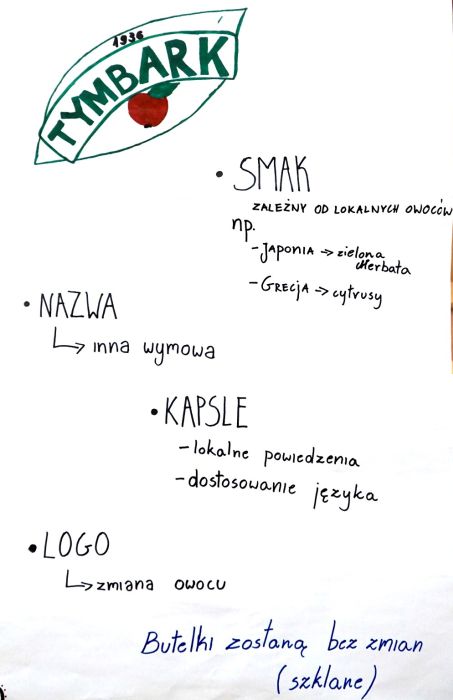 1936
TYMBARK
• SMAK
ZALEŻNY OD LOKALNYCH OWOCÓW
np.
- JAPONIA → zielona
herbata
- GRECJA → cytrusy
• NAZWA
↳ inna wymowa
• KAPSLE
- lokalne powiedzenia
- dostosowanie języka
• LOGO
↳ zmiana owocu
Butelki zostaną bez zmian
(szklane)